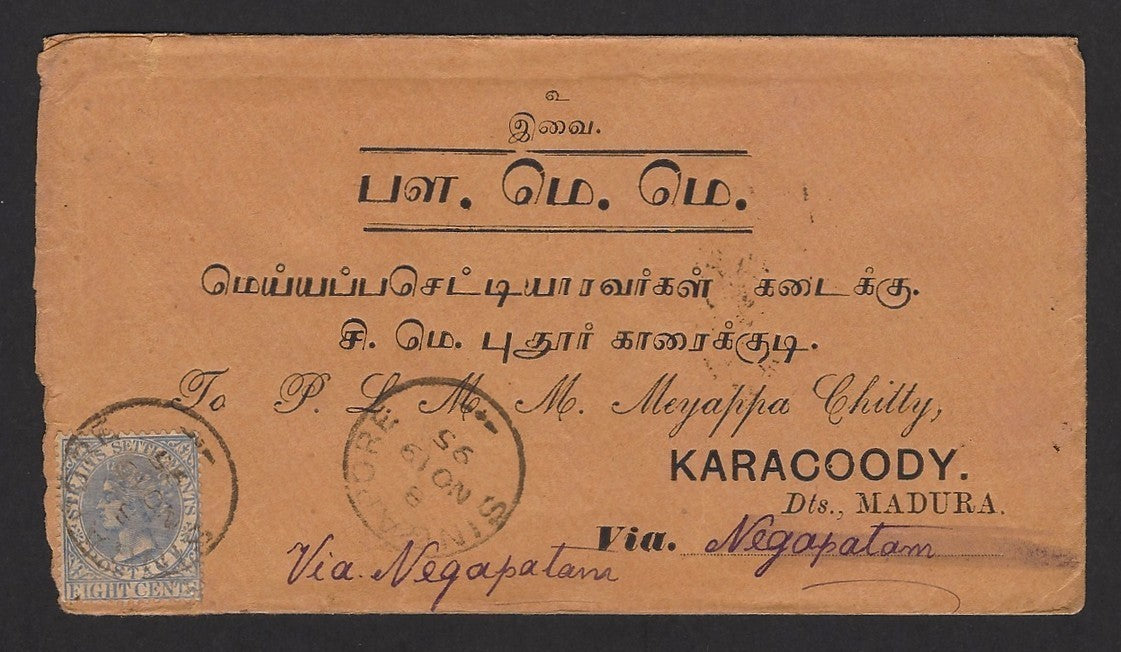 உ
இவை.
பள. மெ. மெ.
மெய்யப்பசெட்டியாரவர்கள் கடைக்கு.
சி. மெ. புதூர் காரைக்குடி.
To P. L M. M. Meyappa Chitty,
KARACOODY.
Dts., MADURA.
Via. Negapatam
Via. Negapatam
SINGAPORE
NO 19
95
STRAITS SETTLEMENTS
POSTAGE
EIGHT CENTS